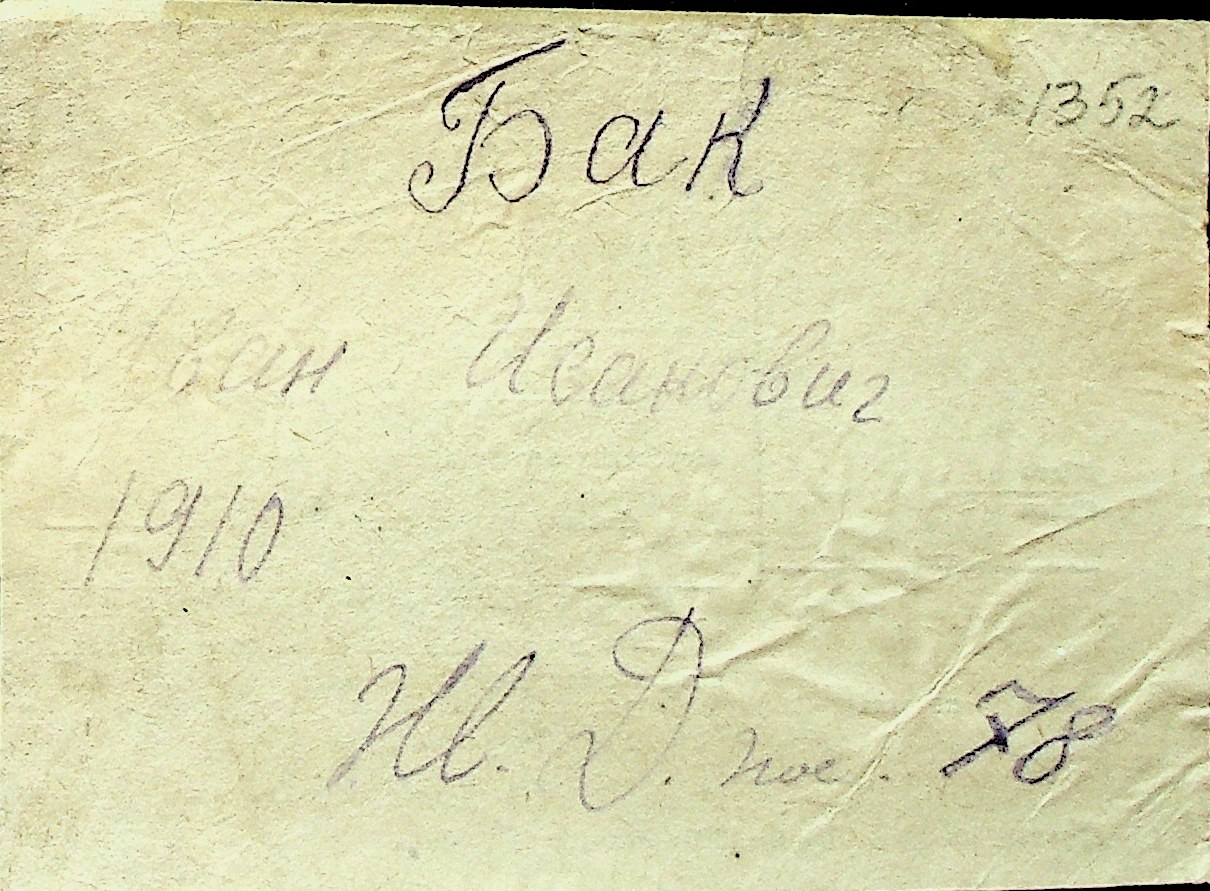 1352
Бак
Иван Иванович
1910
Ж. Д. пос. 78